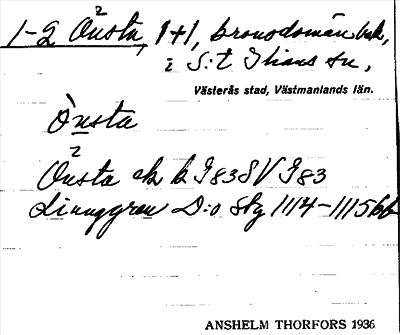 1-2 Önsta, 1+1, kronodomän bak,
i S:t Ilians sn,
Västerås stad, Västmanlands län.
Önsta
2
Önsta ek k I 83 S V I 83
Ljunggren D:o Sky 1114-1115 bb
ANSHELM THORFORS 1936